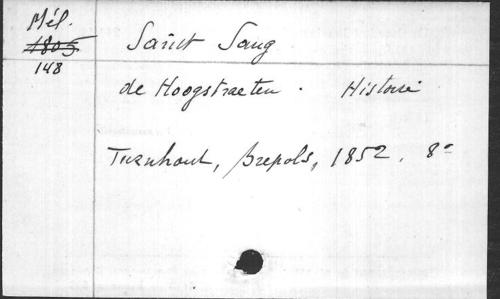 Mél.
1805
148
Saint Sang
de Hoogstraeten. Histoire
Turnhout, Brepols, 1852. 8°